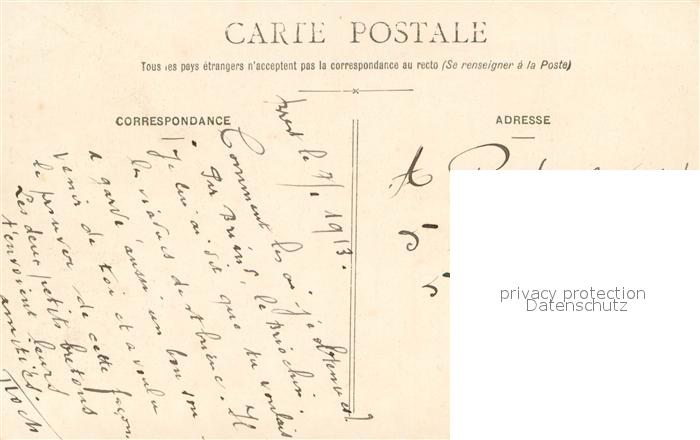 CARTE POSTALE
Tous les pays étrangers n'acceptent pas la correspondance au recto (Se renseigner à la Poste)
CORRESPONDANCE
ADRESSE
Brest le 7/1 1913.
Comment les ai-je obtenues?
par Briens, le Briochin.
Je lui ai dit que tu voulais
les viaducs de St Brieuc. Il
a gardé aussi un bon sou-
venir de toi et a voulu
le prouver de cette façon.
Les deux petits bretons
t'envoient leurs
amitiés.
A
5
5
privacy protection
Datenschutz